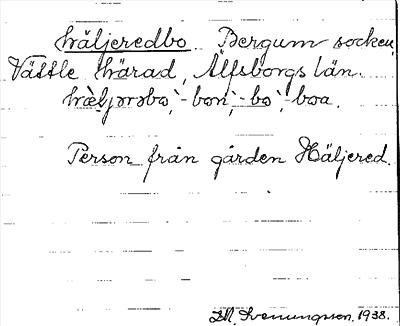 häljeredbo Bergum socken,
Vättle härad, Älfsborgs län.
-bon, -bo, -boa.
Person från gården Häljered.
Svenungsson. 1938.